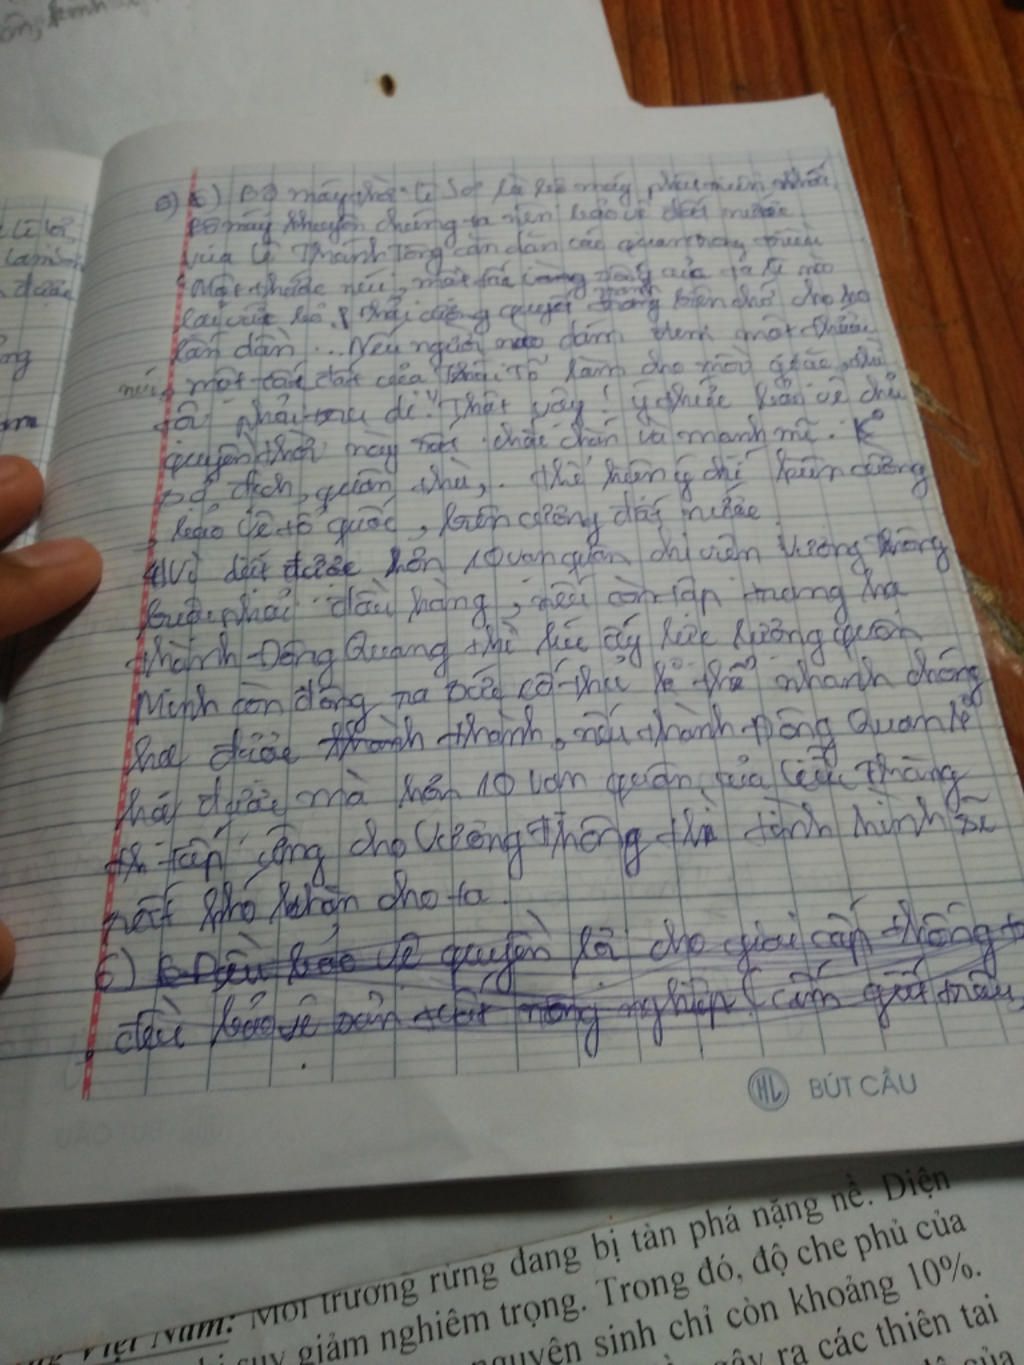 Bộ máy thời Lê Sơ là bộ máy
khuyên chúng ta nên bảo vệ đất nước
của Lê Thánh Tông căn dặn các quan trong triều
Một thước núi, một tấc sông của ta lẽ nào
lại vứt bỏ, phải cương quyết tranh biện chớ cho họ
lấn dần ... Nếu người nào dám đem một thước
núi, một tấc đất của Thái Tổ làm cho mồi giặc thì
tội phải tru di". Thật vậy! ý thức bảo vệ chủ
quyền thời này rất chắc chắn và mạnh mẽ. K
sợ địch, quân thù, thể hiện ý chí kiên cường
bảo vệ tổ quốc, biên cương đất nước
Vì diệt được hơn 10 vạn quân chi viện Vương Thông
buộc phải đầu hàng, nếu còn tập trung hạ
thành Đông Quang thì lúc ấy lực lượng quân
Minh còn đông mà ta cố thủ nhanh chóng
hạ được thành thành, nếu thành Đông Quan k
hạ được mà hơn 10 vạn quân của Liễu Thăng
tấp cứng cho Vương Thông thì tình hình sẽ
rất khó khăn cho ta.
6) Đều bảo vệ quyền lợi cho giai cấp thống
đều bảo vệ sản xuất nông nghiệp (cấm giết trâu
HL BÚT CÂU
Việt Nam: Môi trường rừng đang bị tàn phá nặng nề. Diện
suy giảm nghiêm trọng. Trong đó, độ che phủ của
nguyên sinh chỉ còn khoảng 10%.
gây ra các thiên tai